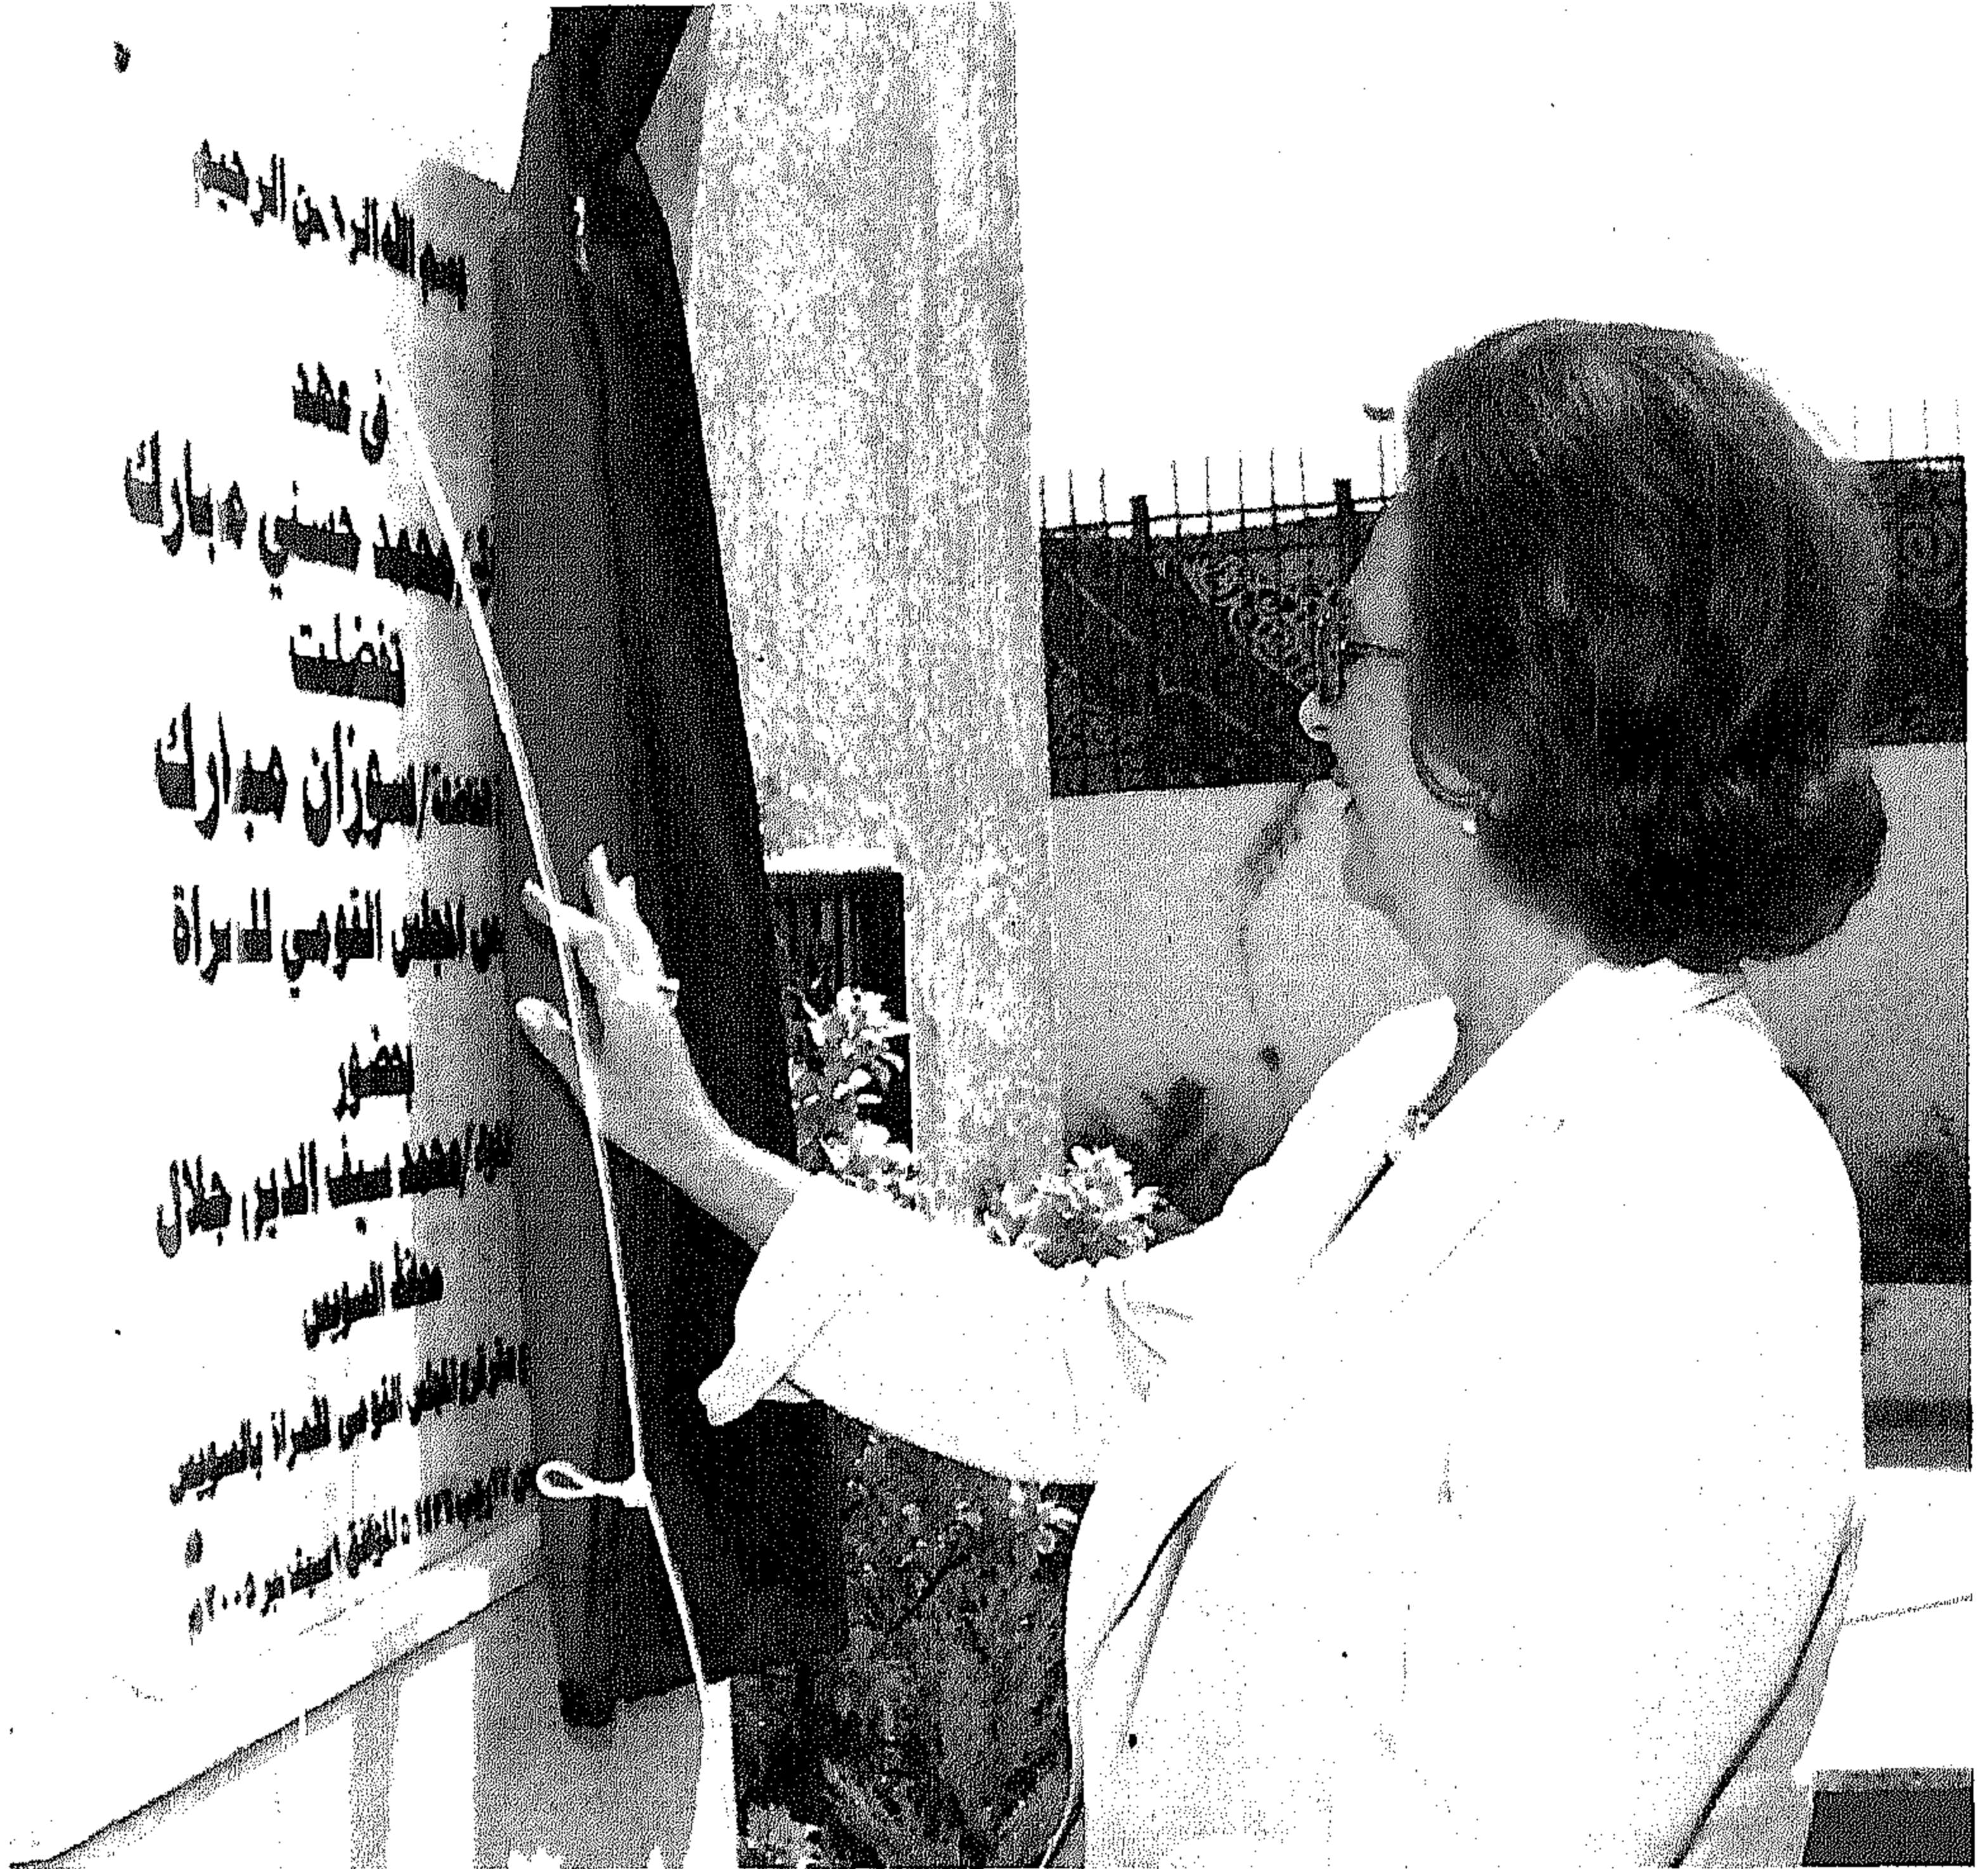 بسم الله الرحمن الرحيم
في عهد
محمد حسني مبارك
تفضلت
الفاضلة/سوزان مبارك
المجلس القومي للمرأة
بحضور
محمد سيف الدين جلال
محافظ السويس
المجلس القومي للمرأة بالسويس
رجب ١٤٢٦ ه الموافق سبتمبر ٢٠٠٥م